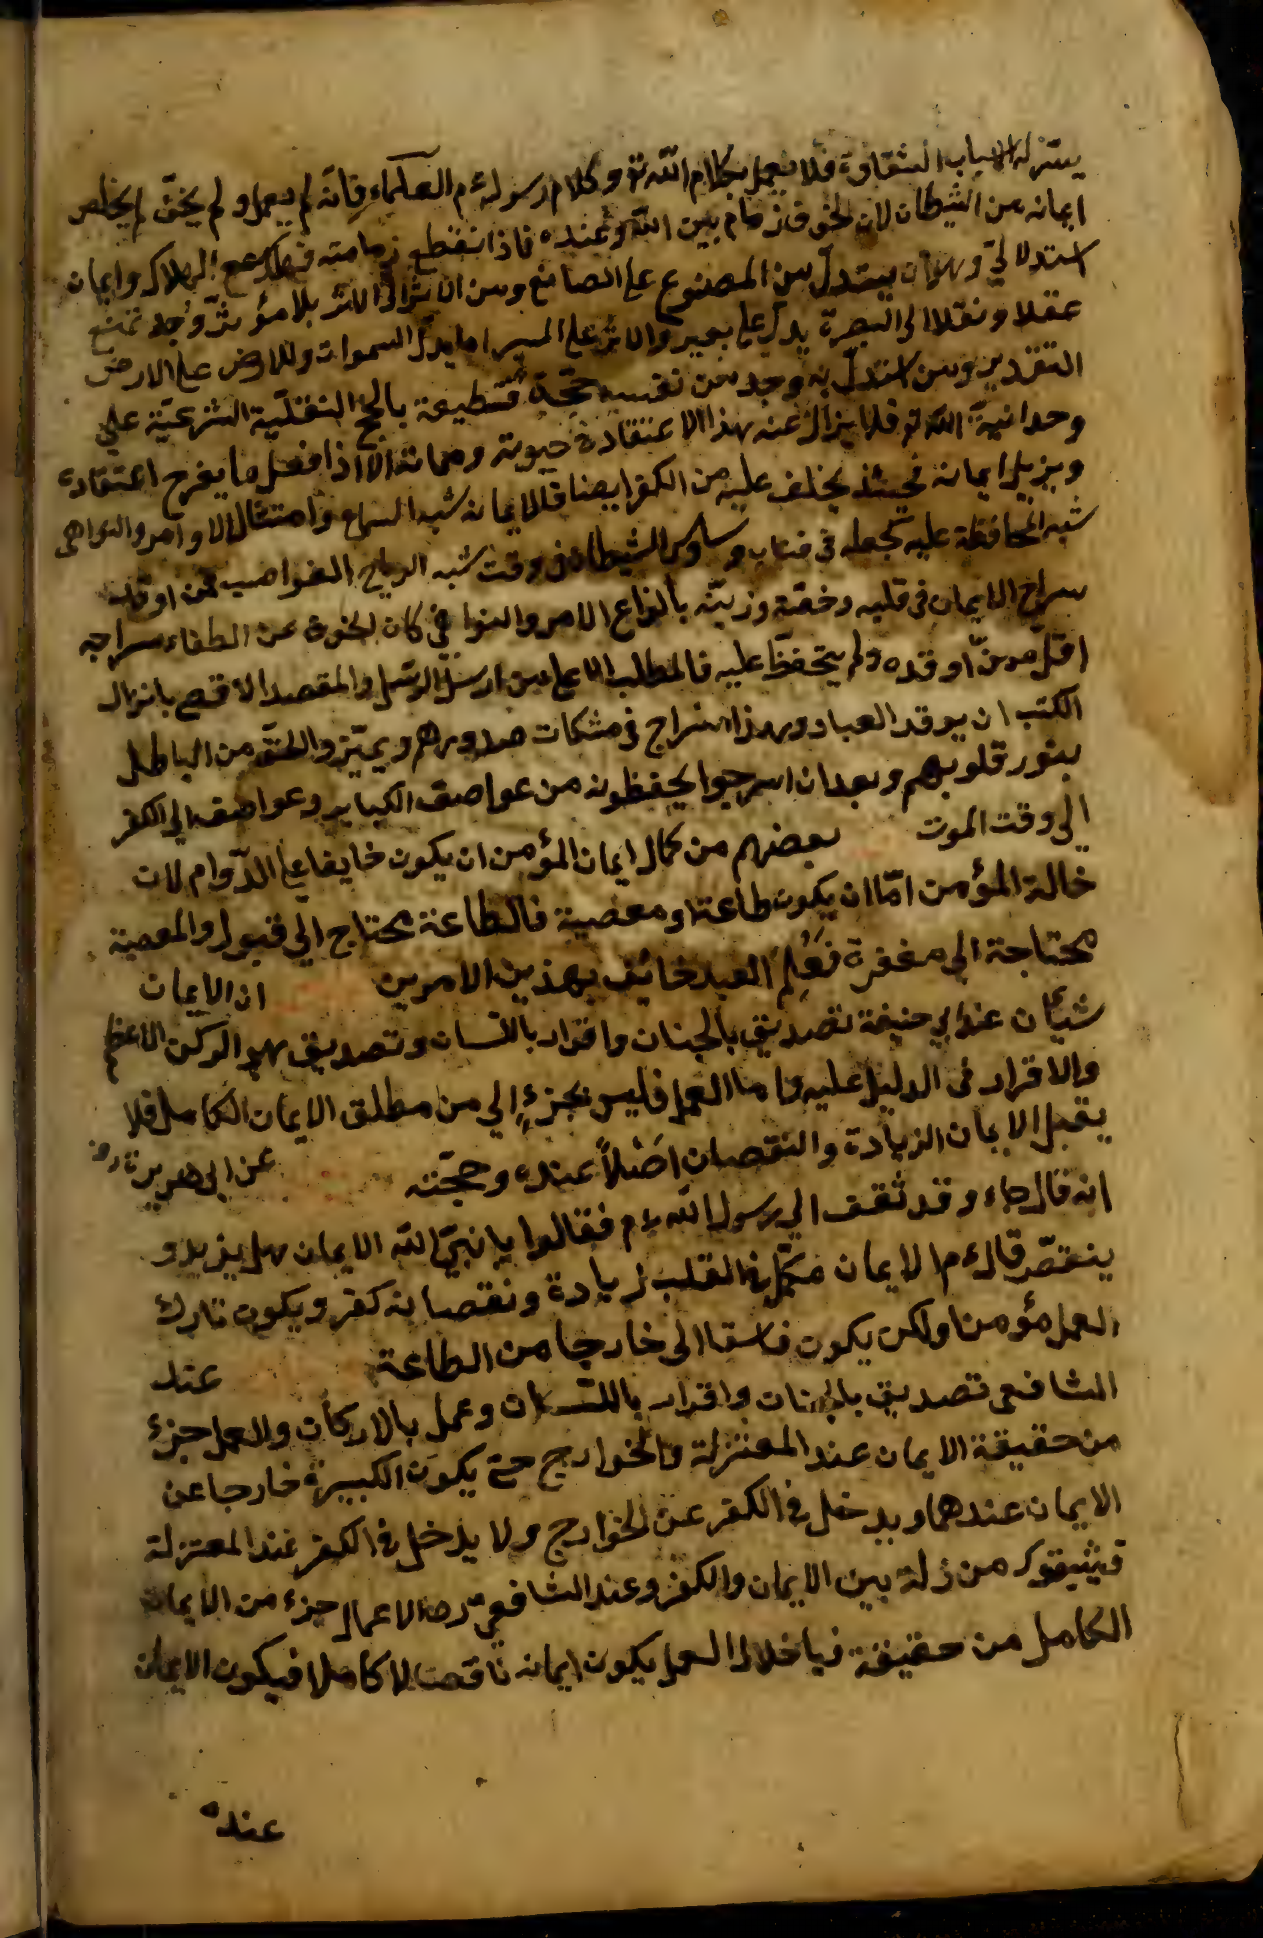 يتنزله اسباب الشقاوة فلا يعمل بكلام الله تع وكلام رسوله م العلماء فانه لم يعمل ولم يخف لم يخلص
ايمانه من الشيطان لان الخوف زمام بين الله وعنده فاذا نقطع زمامته فيكرجع الهلاك وايمان
استدلالي وهو ان يستدل من المصنوع على الصانع ومن الاثر لان الاثر بلا مؤثر وجد تمنع
عقلا ونقلا الى البعرة يدل على بعير والاثر على المسير اما يدل السموات وللارض على الارض
التقدير ومن استدل به وجد من نفسه حجة قسطيعة بالحج النقلية الشرعية على
وحدانية الله تع فلا يزال عنه بهذا الاعتقاد حيوته ومماته الا اذا فعل ما يفرح اعتقاده
ويزيل ايمانه فحينئذ يخلف عليه من الكفر ايضا فالايمان شبه السراج وامتثال الاوامر والنواهى
شبه المحافظة عليه كجعله في وساوس الشيطان فى وقت شبه الرياح العواصب فمن اوقد
سراج الايمان في قلبه وخفته وزينه بانواع الامر والنوا هي كان الخوف عن الطفاء سراجه
اقل من اوقده ولم يتحفظ عليه فالمطلب الاعلى من ارسل الرسل والمقصد الاقصى بانزال
الكتب ان يوقد العباد وبهذا السراج في مشكات صدورهم ويميز والحق من الباطل
بنور قلوبهم وبعد ان اسرجوا يحفظونه من عواصف الكباير وعواصف الى الكفر
الى وقت الموت بعضهم من كمال ايمان المؤمن ان يكون خايفا على الدوام لان
خالة المؤمن اما ان يكون طاعة او معصية فالطاعة محتاج الى قبول والمعصية
محتاجة الى مغفرة فعلم العبد خائف بهذين الامرين ان الايمان
شيأن عند ابى حنيفة تصديق بالجنان واقرار باللسان وتصديق هو الركن الاعظم
والاقرار فى الدليل عليه واما العمل فليس بجزء الى من مطلق الايمان الكامل فلا
يقبل الايمان الزيادة والنقصان اصلاً عنده وحجته عن ابى هريرة رض
انه قال جاء وقد ثقف الى رسول الله م فقالوا يا نبي الله الايمان هل يزيد و
ينقص قال م الايمان مكمل في القلب زيادة ونقصانه كفر ويكون تارك
العمل مؤمنا ولكن يكون فاسقا الى خارجا من الطاعة عند
الشافعى تصديق بالجنان واقرار باللسان وعمل بالاركان والعمل جزء
من حقيقة الايمان عند المعتزلة والخوارج حتى يكون الكبيرة خارجا عن
الايمان عندهما ويدخل في الكفر عن الخوارج ولا يدخل في الكفر عند المعتزلة
من زلة بين الايمان والكفر وعند الشافعي رح الاعمال جزء من الايمان
الكامل من حقيقة فباخلال العمل يكون ايمانه ناقصا لا كاملا فيكون الايمان
عنده